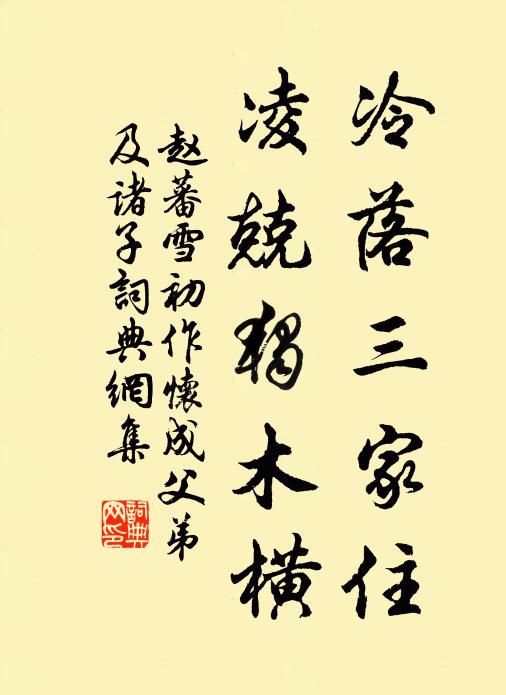 冷落三家住
凌兢独木横
赵蕃雪初作懷成父弟
及諸子詞典網集
詞典
网印